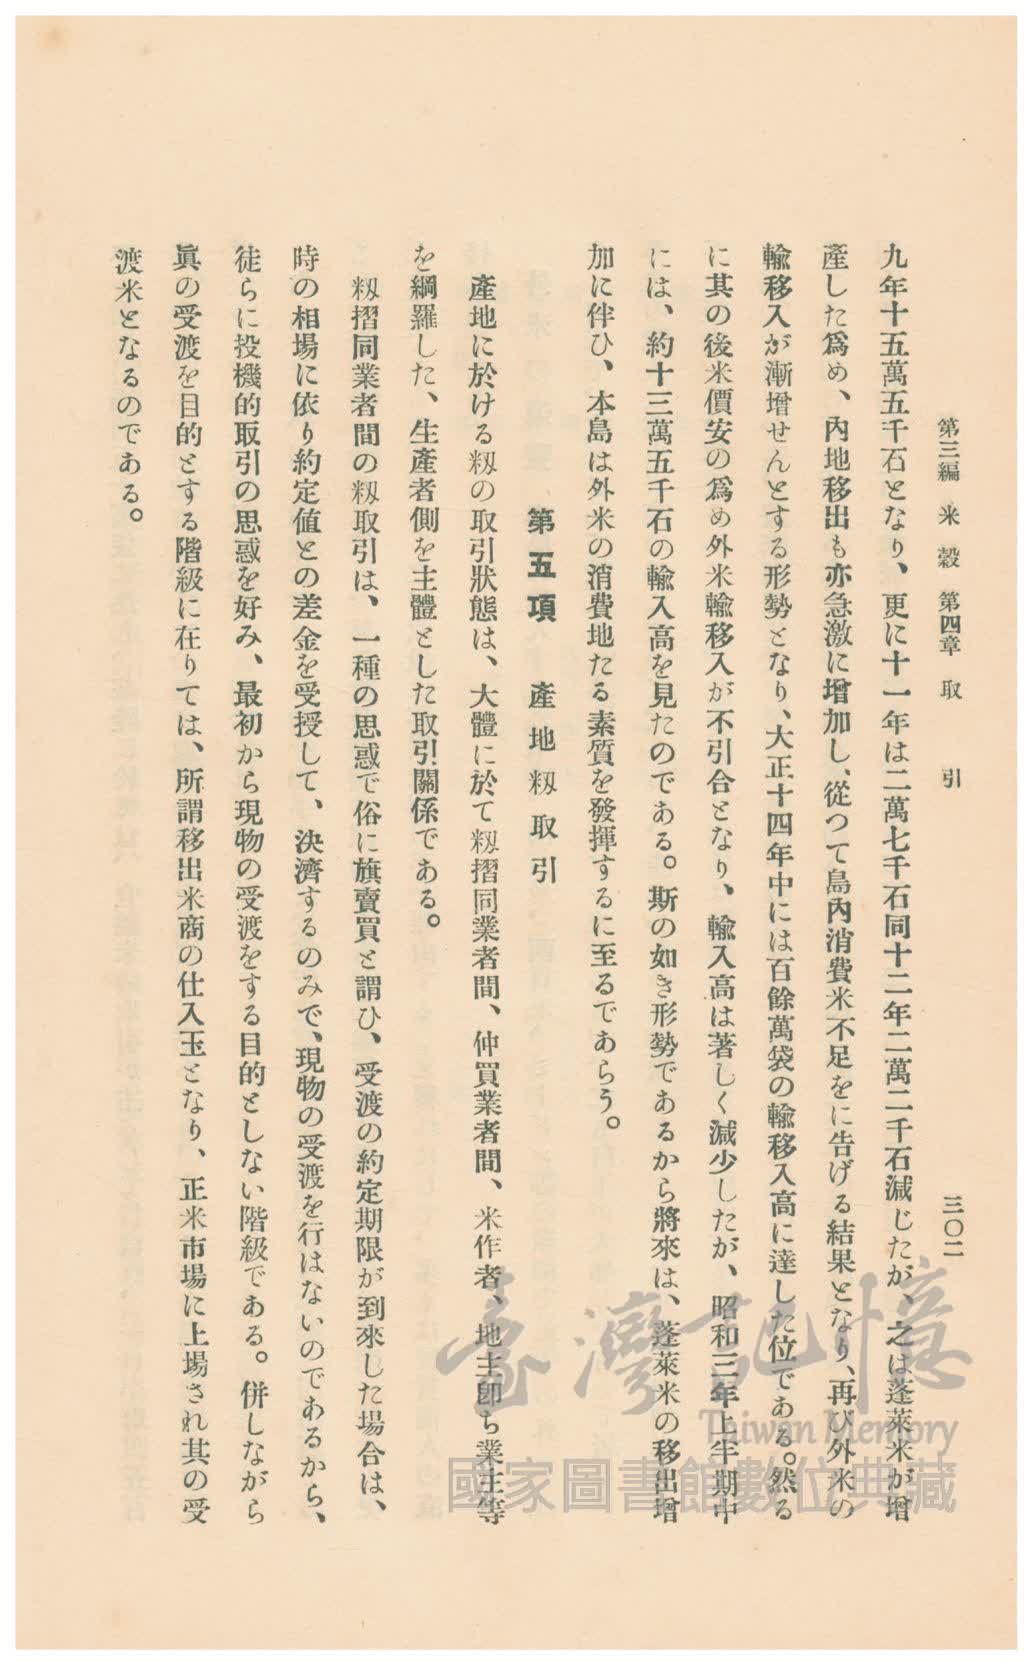 第三編 米穀 第四章 取引 三〇二
九年十五萬五千石となり、更に十一年は二萬七千石同十二年二萬二千石減じたが、之は蓬萊米が增
產した爲め、內地移出も亦急激に增加し、從つて島內消費米不足をに吿げる結果となり、再び外米の
輸移入が漸增せんとする形勢となり、大正十四年中には百餘萬袋の輸移入高に達した位である。然る
に其の後米價安の爲め外米輸移入が不引合となり、輸入高は著しく減少したが、昭和三年上半期中
には、約十三萬五千石の輸入高を見たのである。斯の如き形勢であるから將來は、蓬萊米の移出增
加に伴ひ、本島は外米の消費地たる素質を發揮するに至るであらう。
第五項 產地籾取引
產地に於ける籾の取引狀態は、大體に於て籾摺同業者間、仲買業者間、米作者、地主卽ち業主等
を綱羅した、生產者側を主體とした取引關係である。
籾摺同業者間の籾取引は、一種の思惑で俗に旗賣買と謂ひ、受渡の約定期限が到來した場合は、
時の相場に依り約定値との差金を受授して、決濟するのみで、現物の受渡を行はないのであるから、
徒らに投機的取引の思惑を好み、最初から現物の受渡をする目的としない階級である。併しながら
眞の受渡を目的とする階級に在りては、所謂移出米商の仕入玉となり、正米市場に上場され其の受
渡米となるのである。
臺灣記憶
Taiwan Memory
國家圖書館數位典藏